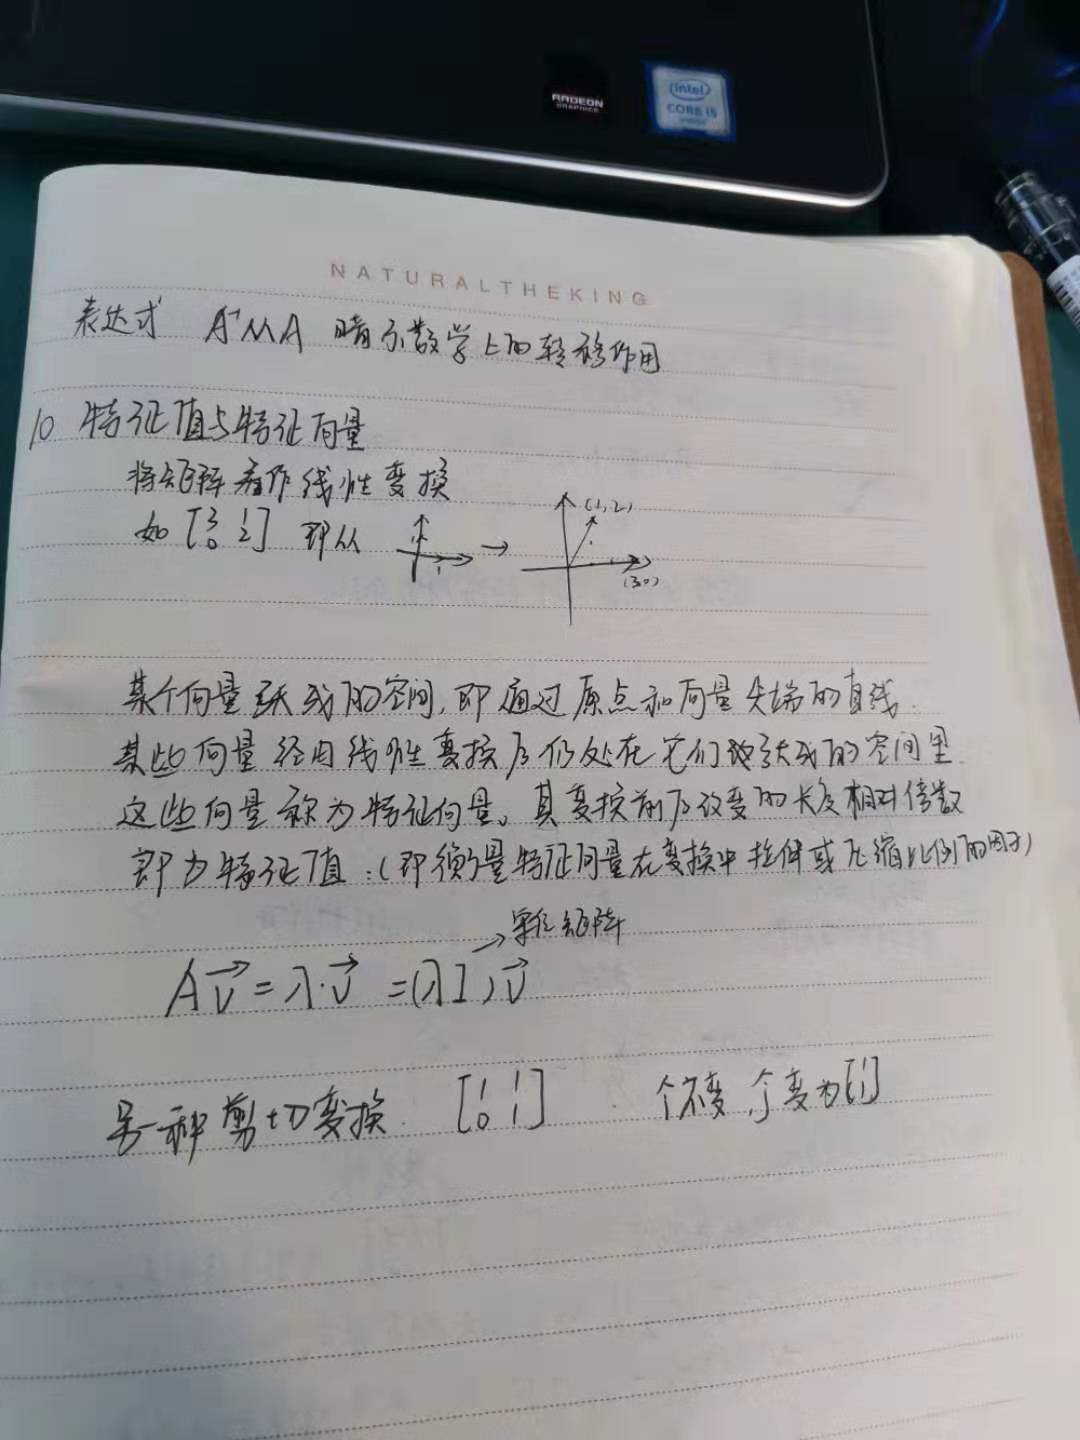 RADEON
GRAPHICS
intel
CORE i5
NATURALTHEKING
表达式 A⁻¹MA 暗示数学上的转移作用
10 特征值与特征向量
将矩阵看作线性变换
如 [3 1; 0 2] 即从 → (1,2) (3,0)
某个向量张成的空间,即通过原点和向量尖端的直线.
某些向量经由线性变换后仍处在它们张成的空间里
这些向量称为特征向量。其变换前后改变的长度相对倍数
即为特征值:(即衡量特征向量在变换中拉伸或压缩比例的因子)
→单位矩阵
Av⃗ = λ·v⃗ = (λI)v⃗
另一种剪切变换. [1 1; 0 1] 个不变, 个变为[1; 1]